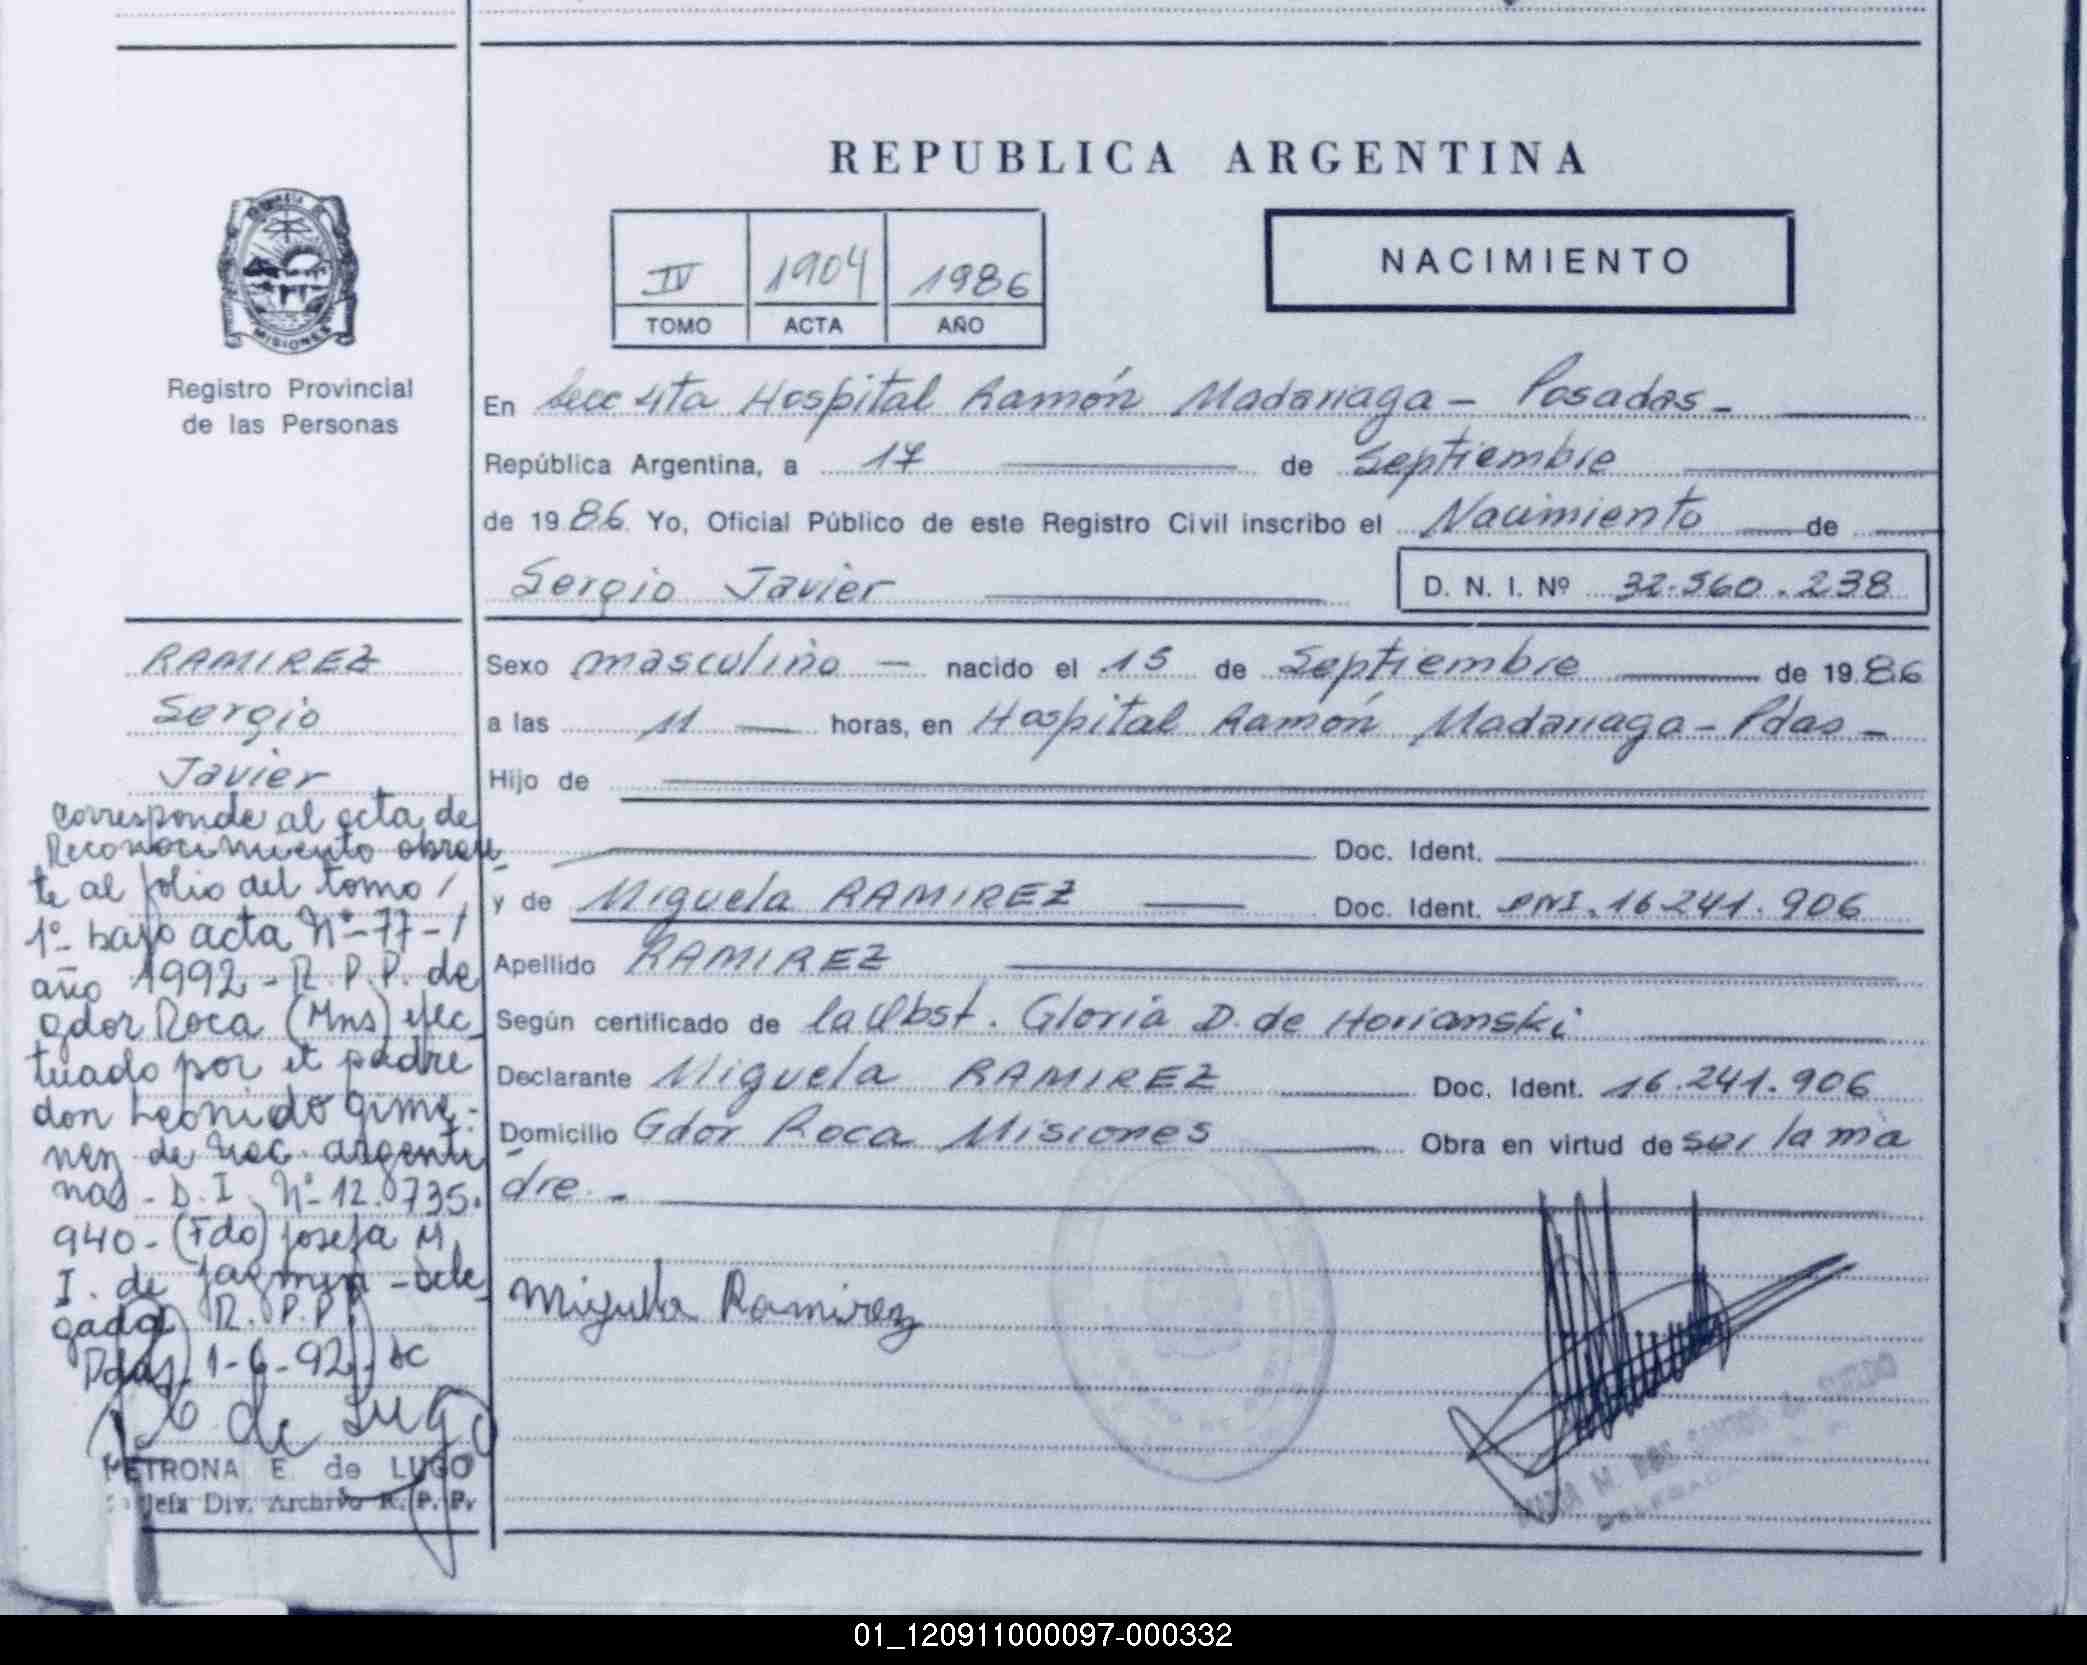 REPUBLICA ARGENTINA
IV 1904 1986
TOMO ACTA AÑO
NACIMIENTO
MISIONES
Registro Provincial
de las Personas
En Secc 4ta Hospital Ramón Madariaga - Posadas -
República Argentina, a 17 de Septiembre
de 1986. Yo, Oficial Público de este Registro Civil inscribo el Nacimiento de
Sergio Javier D. N. I. Nº 32.560.238
Sexo masculino - nacido el 15 de Septiembre de 1986
a las 11 horas, en Hospital Ramón Madariaga - Pdas -
Hijo de
Doc. Ident.
y de Miguela RAMIREZ Doc. Ident. DNI. 16.241.906
Apellido RAMIREZ
Según certificado de la Obst. Gloria D. de Horianski
Declarante Miguela RAMIREZ Doc. Ident. 16.241.906
Domicilio Gdor Roca Misiones Obra en virtud de ser la ma
dre. -
Miguela Ramirez
RAMIREZ
Sergio
Javier
Corresponde al acta de
Reconocimiento obran-
te al folio del tomo /
1º- bajo acta Nº-77-/
año 1992 - R.P.P. de
gdor Roca (Mns) efec-
tuado por el padre
don Leonido Gime-
nez de nac. argenti
nas - D.I. Nº-12.735.
940 - (Fdo) Josefa M.
I. de - dele-
gada R.P.P.
Pdas, 1-6-92.
E de Lugo
PETRONA E. de LUGO
Jefa Div. Archivo R. P. P.
01_120911000097-000332